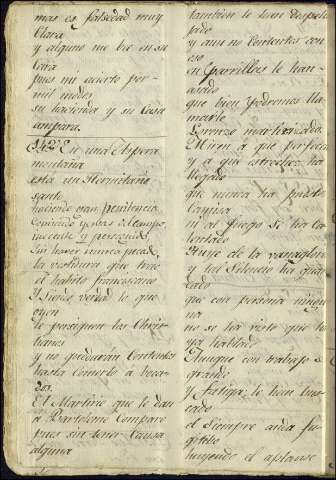 mas es falsedad muy
Clara
y alguno me
Cara
pues mi acierto por
mil modos
su hacienda y su Casa
ampara.
En una Aspera
montaña
esta un Hermitaño
santo
haciendo gran penitencia
Comiendo yerbas del Campo
inocente y perseguido
sin haver nunca pecado
la vestidura que trae
el habito franciscano
Y siendo verdad lo que
oyen
le persiguen los Chris
tianos
y no quedarán Contentos
hasta comerlo a boca
dos.
El Martirio que le dan
a Bartolome Comparo
pues sin tener Causa
alguna
tambien le han
pado
y aun no Contentos con
eso
en Parrillas le han
asado
que bien podremos lla
marlo
Lorenzo martirizado.
Miren a que perfecion
y a que estrechez ha
llegado
que nunca ha
Camisa
ni al fuego se ha ca
lentado
Huye de la vanagloria
y tal Silencio ha
dado
que con persona ningu
na
no se ha visto que
ya hablado.
Aunque con trabajo
grande
y fatiga le han bus
cado
el siempre anda fu
gitibo
huyendo el aplauso